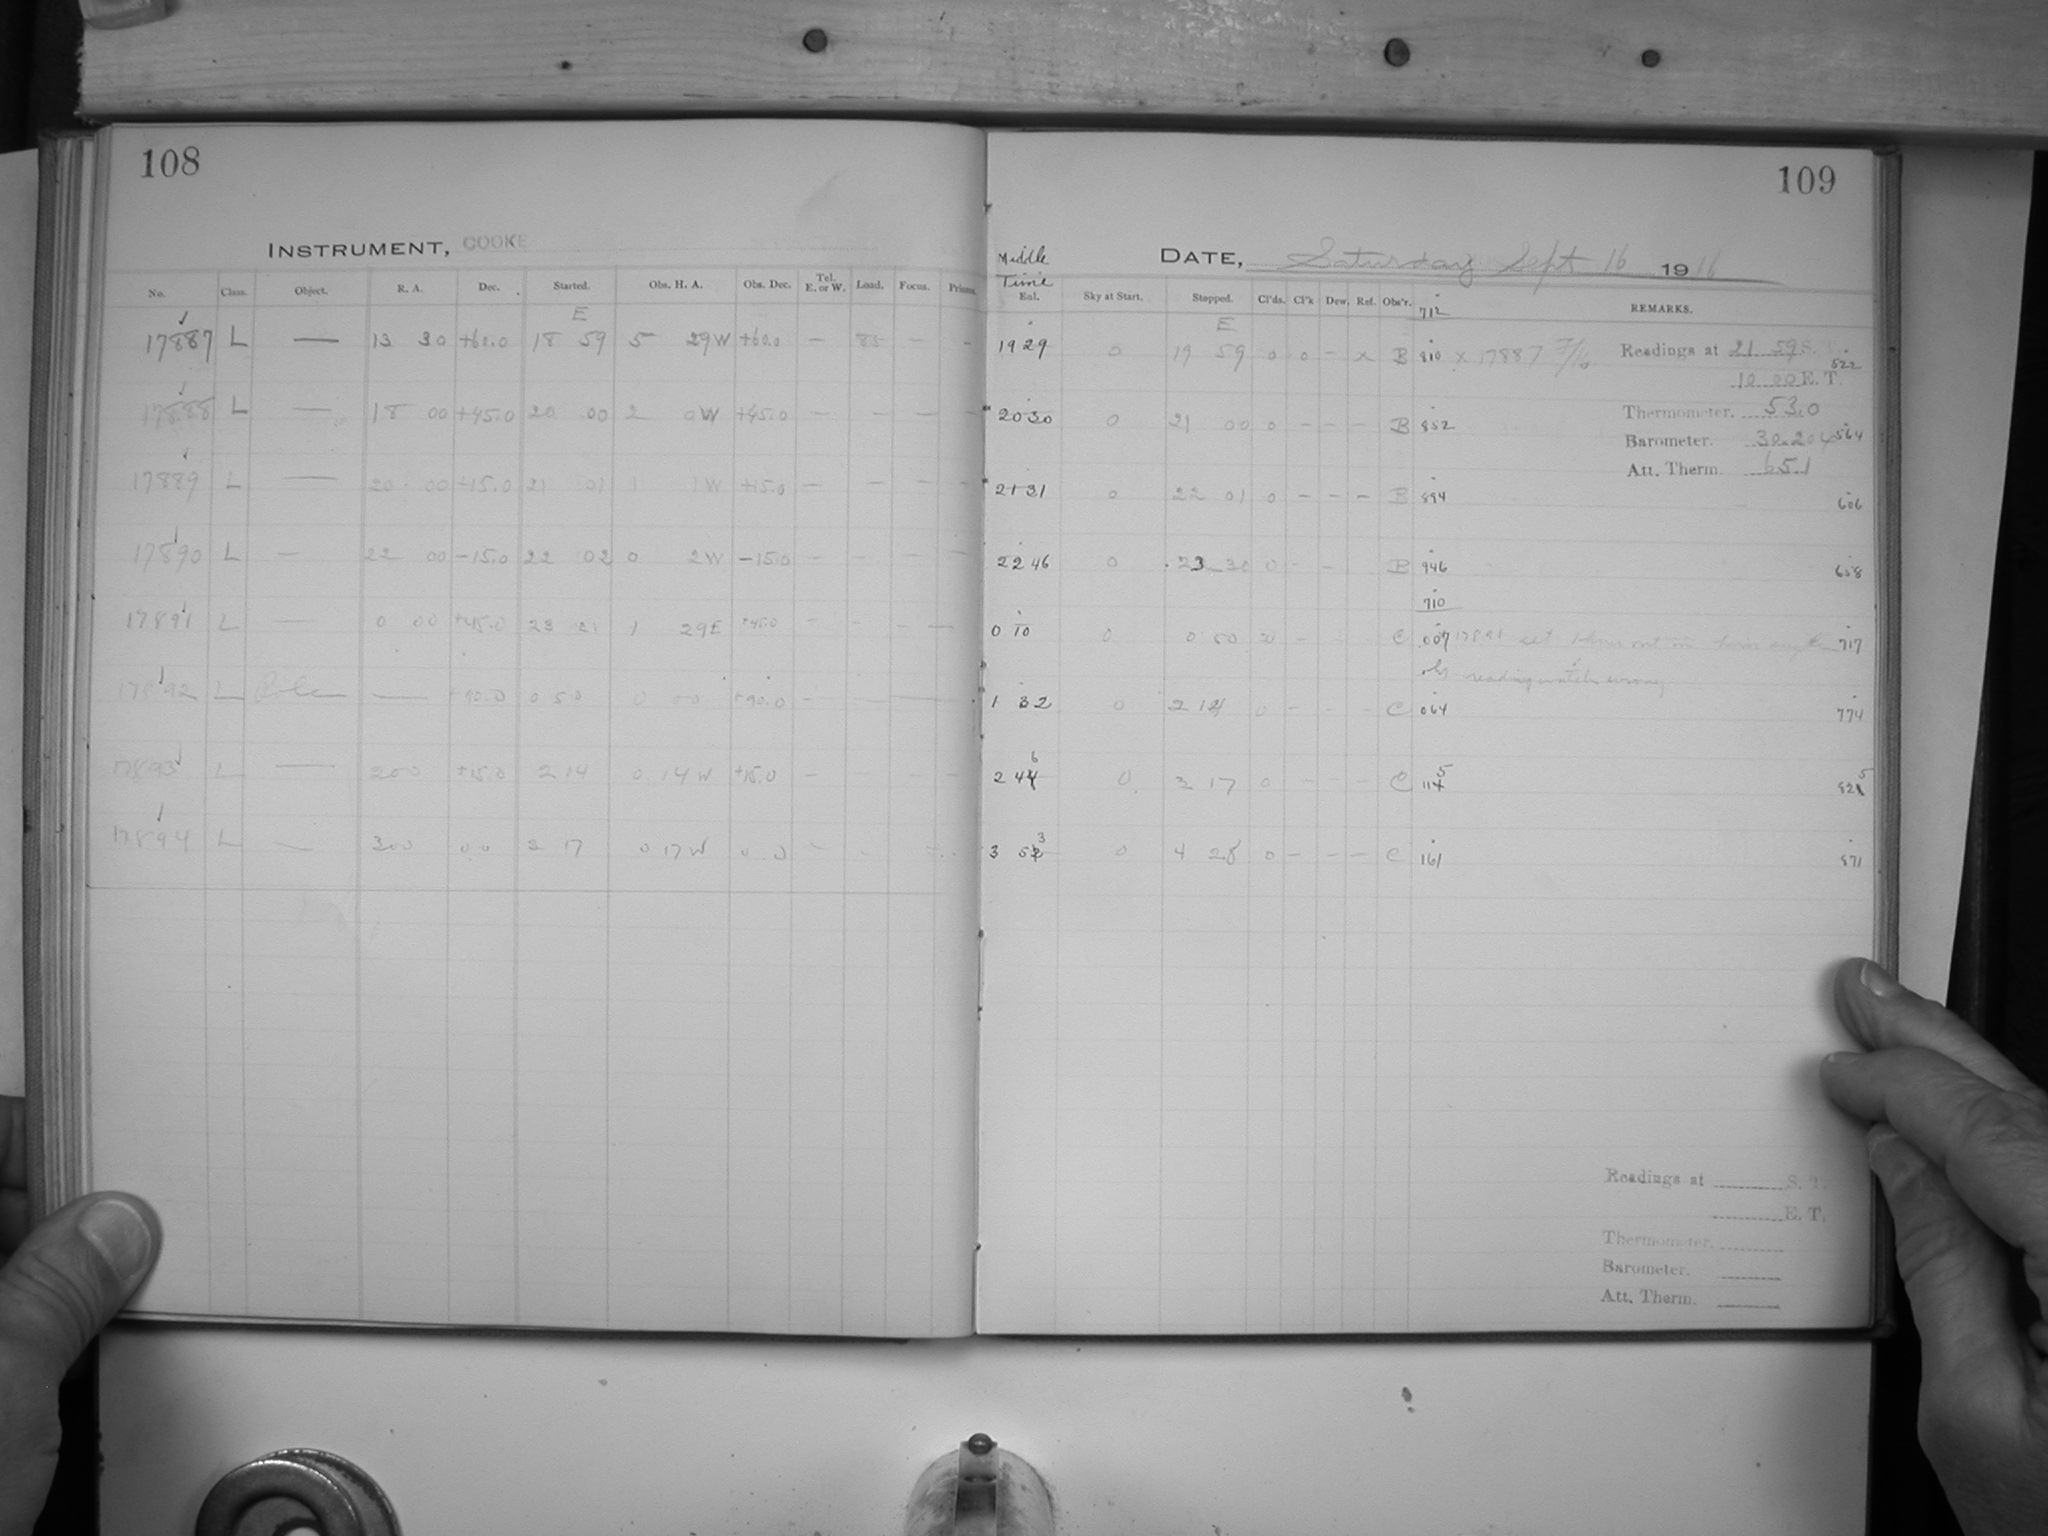 108
INSTRUMENT, COOKE
No. Class. Object. R. A. Dec. Started. Obs. H. A. Obs. Dec. Tel. E. or W. Load. Focus. Prisms.
E
17887 L — 13 30 +60.0 18 59 5 29W +60.0 — 85 — —
17888 L — 18 00 +45.0 20 00 2 0W +45.0 — — — —
17889 L — 20 00 +15.0 21 01 1 1W +15.0 — — — —
17890 L — 22 00 -15.0 22 02 0 2W -15.0 — — — —
17891 L — 0 00 +45.0 23 21 1 29E +45.0 — — — —
17892 L Pole — +90.0 0 50 0 00 +90.0 — — — —
17893 L — 2 00 +15.0 2 14 0 14W +15.0 — — — —
17894 L — 3 00 0.0 3 17 0 17W 0 0 — — — —
109
DATE, Saturday Sept 16 1916
Middle Time
Enl. Sky at Start. Stopped. Cl'ds. Cl'k Dew. Ref. Obs'r. 712 REMARKS.
E
19 29 0 19 59 0 0 — x B 810 x 17887 7/16 Readings at 21 59 S. 522
10 00 E. T.
20 30 0 21 00 0 — — — B 852 Thermometer. 53.0
Barometer. 30.204 564
Att. Therm. 65.1
21 31 0 22 01 0 — — — B 894 606
22 46 0 23 30 0 — — B 946 658
710
0 10 0 0 50 0 — — C .007 17891 set 1 hour out in hour angle 717
reading watch wrong
1 32 0 2 14 0 — — — C 064 774
6
2 44 0 3 17 0 — — — C 114 5 824 5
3
3 52 0 4 28 0 — — — C 161 871
Readings at S. T.
E. T.
Thermometer.
Barometer.
Att. Therm.